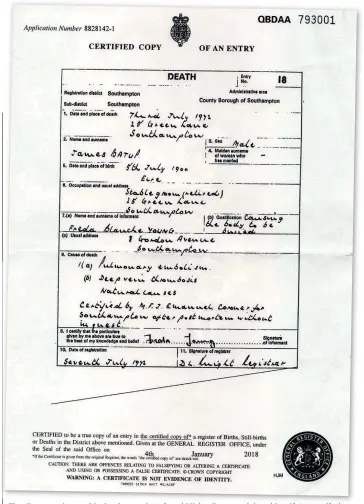 Application Number 8828142-1
QBDAA 793001
CERTIFIED COPY OF AN ENTRY
DEATH
Entry No. 18
Registration district Southampton
Administrative area
Sub-district Southampton
County Borough of Southampton
1. Date and place of death
Third July 1972
28 Green Lane
Southampton
2. Name and surname
James BATUP
3. Sex Male
4. Maiden surname of woman who has married —
5. Date and place of birth 5th July 1900
Eire
6. Occupation and usual address
Stable groom (retired)
28 Green Lane
Southampton
7.(a) Name and surname of informant
Freda Blanche YOUNG
(b) Qualification Causing
the body to be
buried
(c) Usual address
8 Gordon Avenue
Southampton
8. Cause of death
I(a) Pulmonary embolism.
(b) Deep vein thrombosis
Natural causes
Certified by M.F.J Emanuel Coroner for
Southampton after post mortem without
inquest
9. I certify that the particulars
given by me above are true to
the best of my knowledge and belief
Signature
of informant
10. Date of registration
Seventh July 1972
11. Signature of registrar
Registrar
CERTIFIED to be a true copy of an entry in the certified copy of a register of Births, Still-births
or Deaths in the District above mentioned. Given at the GENERAL REGISTER OFFICE, under
the Seal of the said Office on 4th January 2018
CAUTION: THERE ARE OFFENCES RELATING TO FALSIFYING OR ALTERING A CERTIFICATE
AND USING OR POSSESSING A FALSE CERTIFICATE. © CROWN COPYRIGHT
WARNING: A CERTIFICATE IS NOT EVIDENCE OF IDENTITY.
HJM
GENERAL REGISTER OFFICE